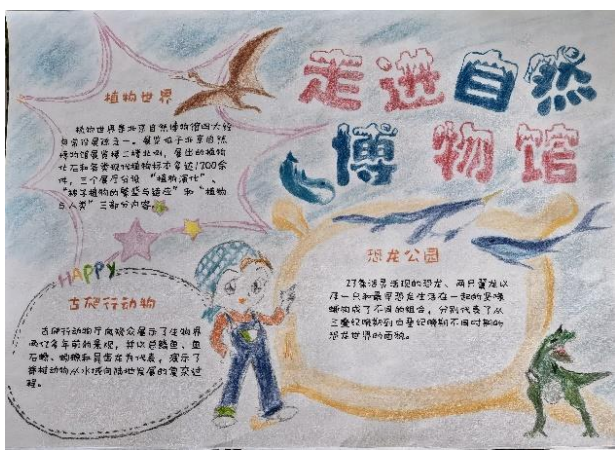 走进自然
博物馆
植物世界
植物世界是北京自然博物馆四大经
典常设展陈之一。展览位于北京自然
博物馆展览楼二楼北侧，展出的植物
化石和各类现代植物标本多达1200余
件，三个展厅分设“植物演化”、
“种子植物的繁盛与适应”和“植物
与人类”三部分内容
HAPPY
古爬行动物
古爬行动物厅向观众展示了生物界
两亿多年前的景观，并以总鳍鱼、鱼
石螈、蚓螈和异齿龙为代表，演示了
脊椎动物从水域向陆地发展的复杂过
程。
恐龙公园
27条活灵活现的恐龙、两只翼龙以
及一只和最早恐龙生活在一起的坚喙
蜥构成了不同的组合，分别代表了从
三叠纪晚期到白垩纪晚期不同时期的
恐龙世界的面貌。